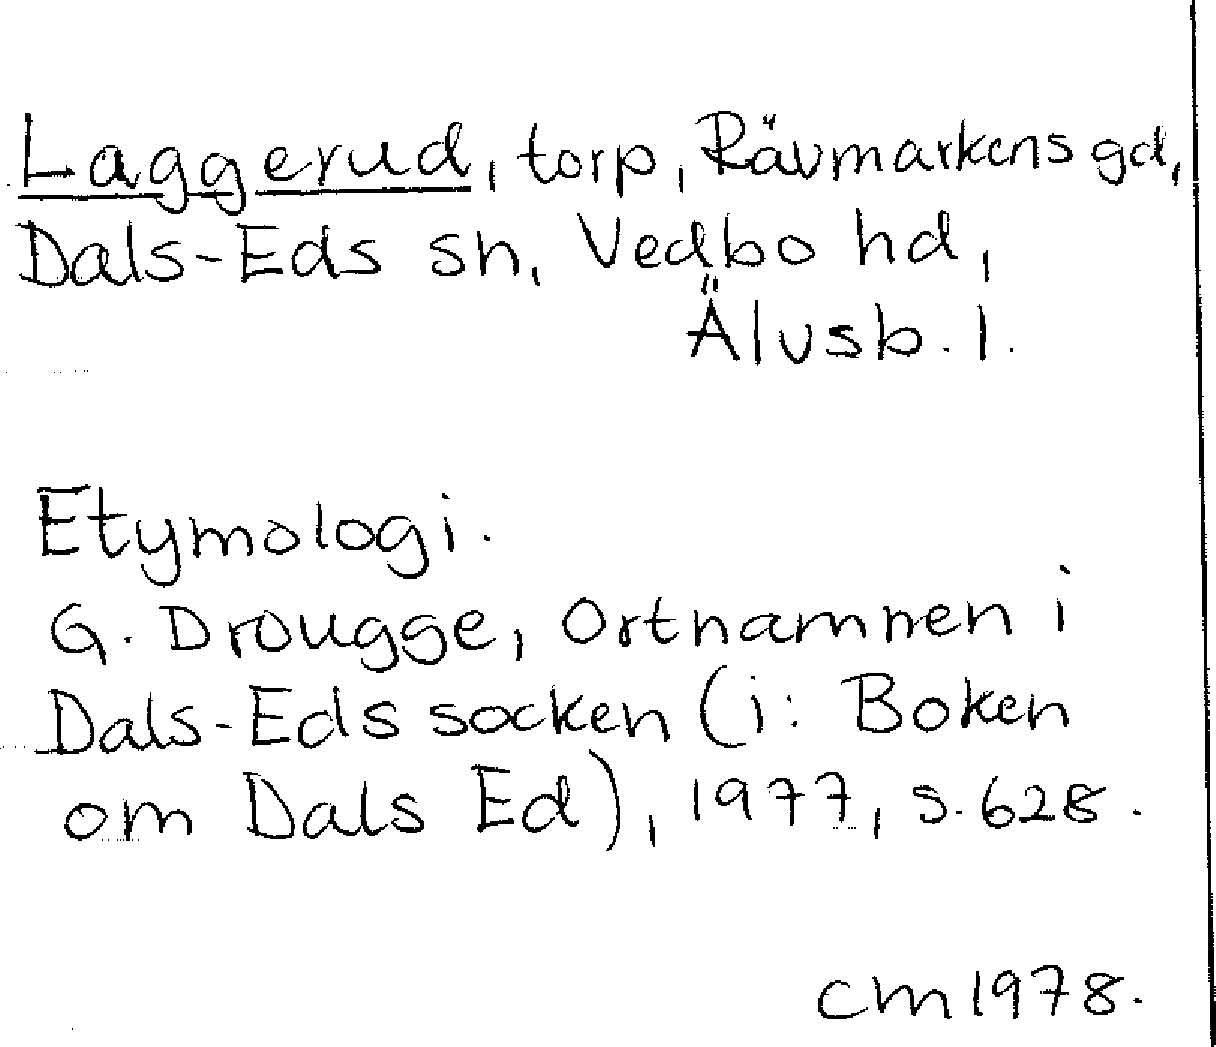 Laggerud, torp, Rävmarkens gd,
Dals-Eds sn, Vedbo hd,
Älvsb. l.
Etymologi.
G. Drougge, Ortnamnen i
Dals-Eds socken (i: Boken
om Dals Ed), 1977, s. 628.
CM 1978.